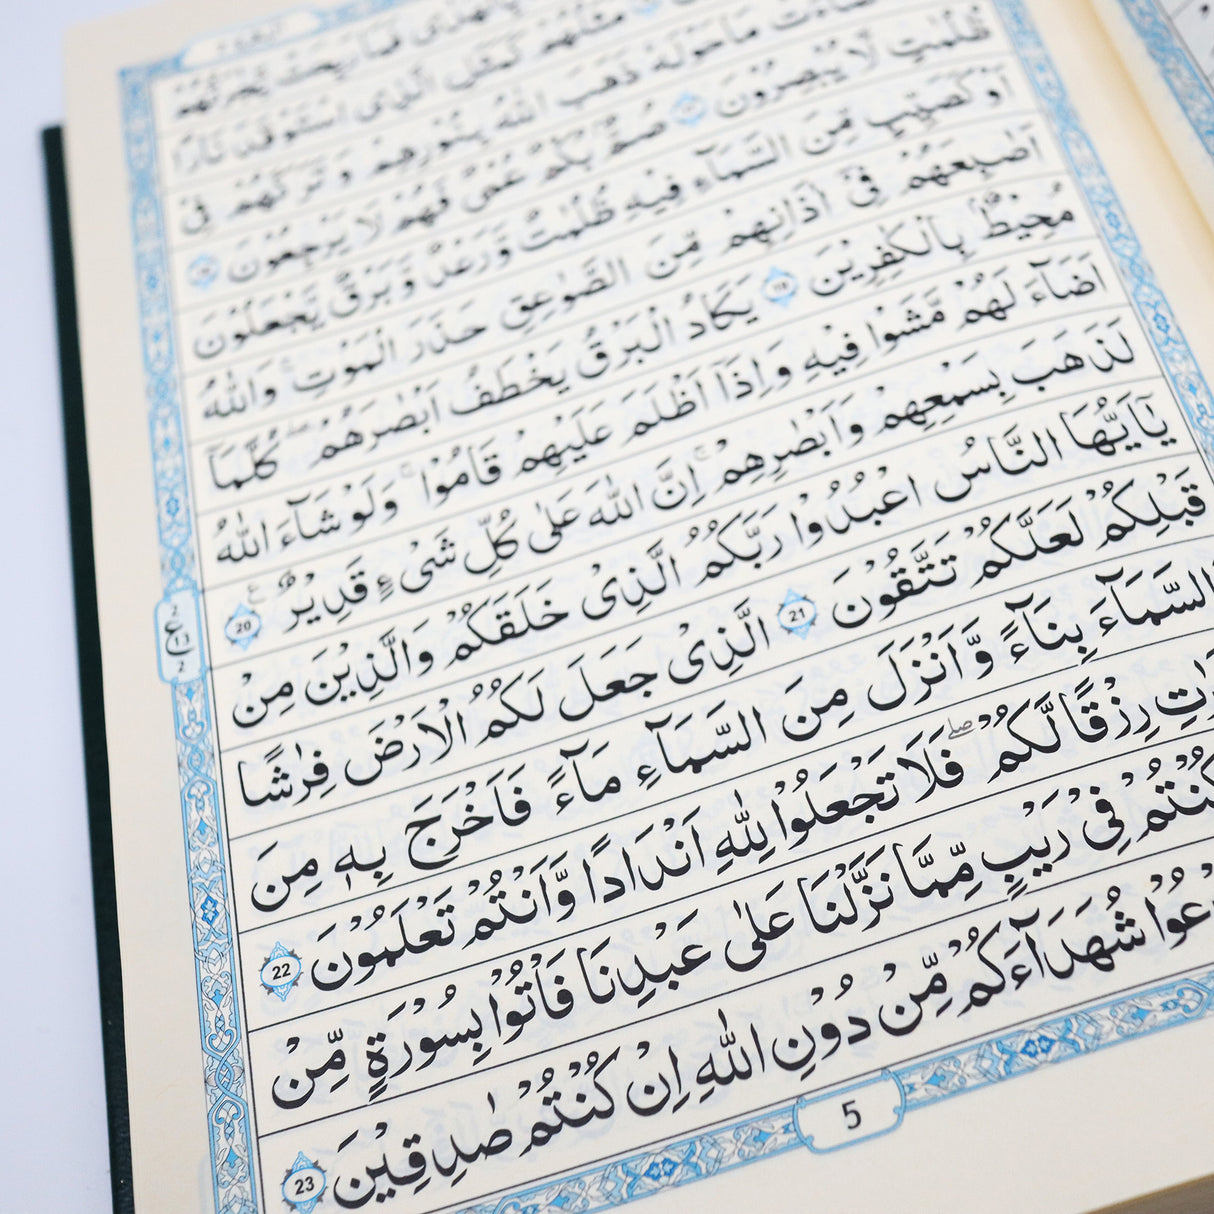 بِالْهُدٰى فَمَا رَبِحَتْ تِّجَارَتُهُمْ
مَثَلُهُمْ كَمَثَلِ الَّذِى اسْتَوْقَدَ نَارًا
مَا حَوْلَهٗ ذَهَبَ اللّٰهُ بِنُوْرِهِمْ وَتَرَكَهُمْ فِىْ
ظُلُمٰتٍ لَّا يُبْصِرُوْنَ ۝ صُمٌّۢ بُكْمٌ عُمْىٌ فَهُمْ لَا يَرْجِعُوْنَ ۝
اَوْ كَصَيِّبٍ مِّنَ السَّمَآءِ فِيْهِ ظُلُمٰتٌ وَّرَعْدٌ وَّبَرْقٌ يَّجْعَلُوْنَ
اَصَابِعَهُمْ فِىْٓ اٰذَانِهِمْ مِّنَ الصَّوَاعِقِ حَذَرَ الْمَوْتِ ؕ وَاللّٰهُ
مُحِيْطٌۢ بِالْكٰفِرِيْنَ ۝ يَكَادُ الْبَرْقُ يَخْطَفُ اَبْصٰرَهُمْ ؕ كُلَّمَآ
اَضَآءَ لَهُمْ مَّشَوْا فِيْهِ وَاِذَآ اَظْلَمَ عَلَيْهِمْ قَامُوْا ۚ وَلَوْ شَآءَ اللّٰهُ
لَذَهَبَ بِسَمْعِهِمْ وَاَبْصٰرِهِمْ ۚ اِنَّ اللّٰهَ عَلٰى كُلِّ شَىْءٍ قَدِيْرٌ 20
يٰٓاَيُّهَا النَّاسُ اعْبُدُوْا رَبَّكُمُ الَّذِىْ خَلَقَكُمْ وَالَّذِيْنَ مِنْ
قَبْلِكُمْ لَعَلَّكُمْ تَتَّقُوْنَ 21 الَّذِىْ جَعَلَ لَكُمُ الْاَرْضَ فِرٰشًا
السَّمَآءَ بِنَآءً وَّاَنْزَلَ مِنَ السَّمَآءِ مَآءً فَاَخْرَجَ بِهٖ مِنَ
رِزْقًا لَّكُمْ ۖ فَلَا تَجْعَلُوْا لِلّٰهِ اَنْدَادًا وَّاَنْتُمْ تَعْلَمُوْنَ 22
كُنْتُمْ فِىْ رَيْبٍ مِّمَّا نَزَّلْنَا عَلٰى عَبْدِنَا فَاْتُوْا بِسُوْرَةٍ مِّنْ
شُهَدَآءَكُمْ مِّنْ دُوْنِ اللّٰهِ اِنْ كُنْتُمْ صٰدِقِيْنَ 23
5